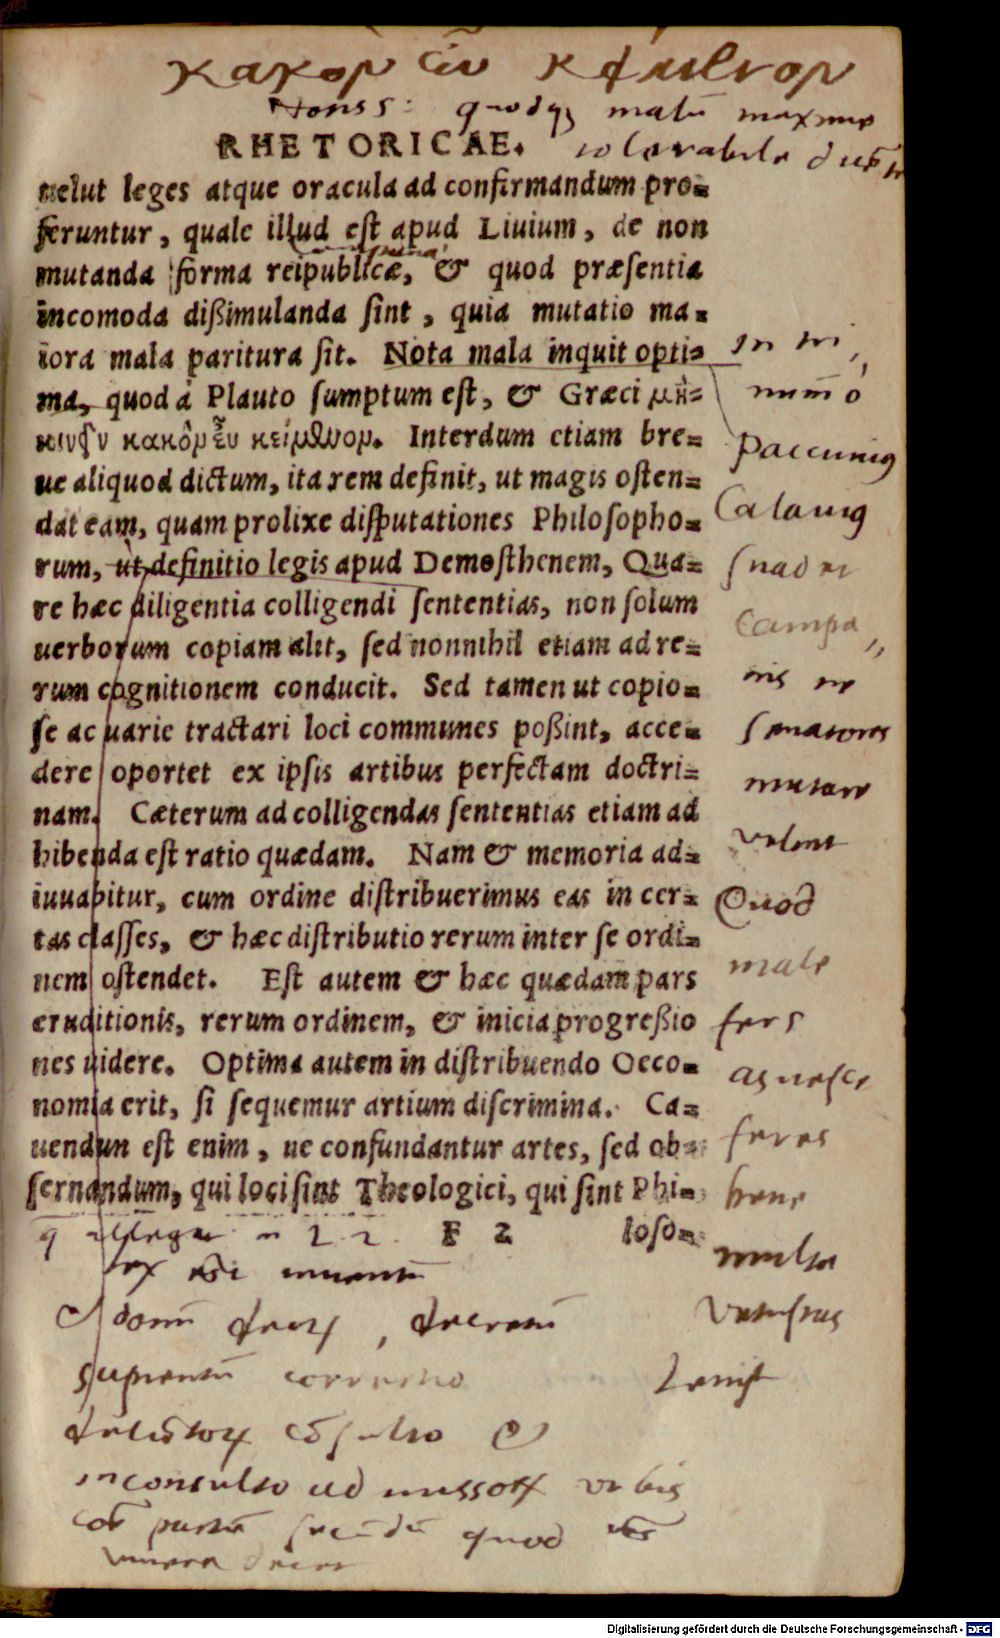 κακὸν εὖ κείμενον
quodq; malū maxime
RHETORICAE.
tolerabile
uelut leges atque oracula ad confirmandum pro=
feruntur, quale illud est apud Liuium, de non
mutanda forma reipublicæ, & quod præsentia
incomoda dißimulanda sint, quia mutatio ma=
iora mala paritura sit. Nota mala inquit opti=
ma, quod à Plauto sumptum est, & Græci μὴ=
κινεῖν κακὸν εὖ κείμενον. Interdum etiam bre=
ue aliquod dictum, ita rem definit, ut magis osten=
dat eam, quam prolixe disputationes Philosopho=
rum, ut definitio legis apud Demosthenem, Qua=
re hæc diligentia colligendi sententias, non solum
uerborum copiam alit, sed nonnihil etiam ad re=
rum cognitionem conducit. Sed tamen ut copio=
se ac uarie tractari loci communes poßint, acce=
dere oportet ex ipsis artibus perfectam doctri=
nam. Cæterum ad colligendas sententias etiam ad
hibenda est ratio quædam. Nam & memoria ad=
iuuabitur, cum ordine distribuerimus eas in cer=
tas classes, & hæc distributio rerum inter se ordi=
nem ostendet. Est autem & hæc quædam pars
eruditionis, rerum ordinem, & inicia progreßio
nes uidere. Optima autem in distribuendo Oeco=
nomia erit, si sequemur artium discrimina. Ca=
uendun est enim, ne confundantur artes, sed ob=
seruandum, qui loci sint Theologici, qui sint Phi=
F 2 loso=
In tri
nummo
Paccuuius
Calauius
suadet
Campa,,
nis ne
senatores
mutare
velent
Quod
male
fers
asuesce
feres
bene
multa
vetustas
lenit
lex est inuentū
& donū deorū, decretū
sapientū correctio
delictorū cōsulto &
inconsulto admissorū vrbis
secūdū quod
viuere
Digitalisierung gefördert durch die Deutsche Forschungsgemeinschaft - DFG